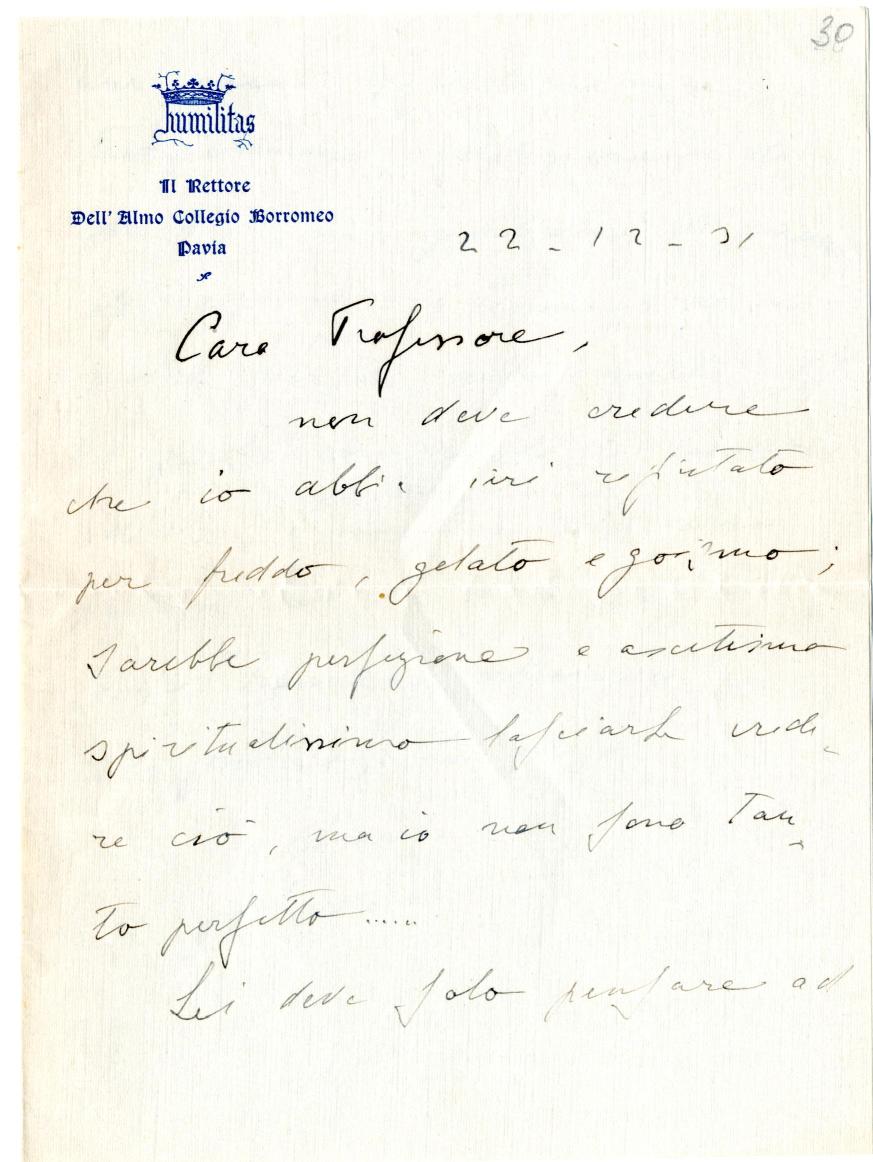 30
humilitas
Il Rettore
Dell' Almo Collegio Borromeo
Pavia
22-12-31
Caro Professore,
non deve credere
che io abbia ieri rifiutato
per freddo, gelato egoismo;
sarebbe perfezione e ascetismo
spiritualissimo lasciarle crede-
re ciò, ma io non sono tan-
to perfetto .....
Lei deve solo pensare ad